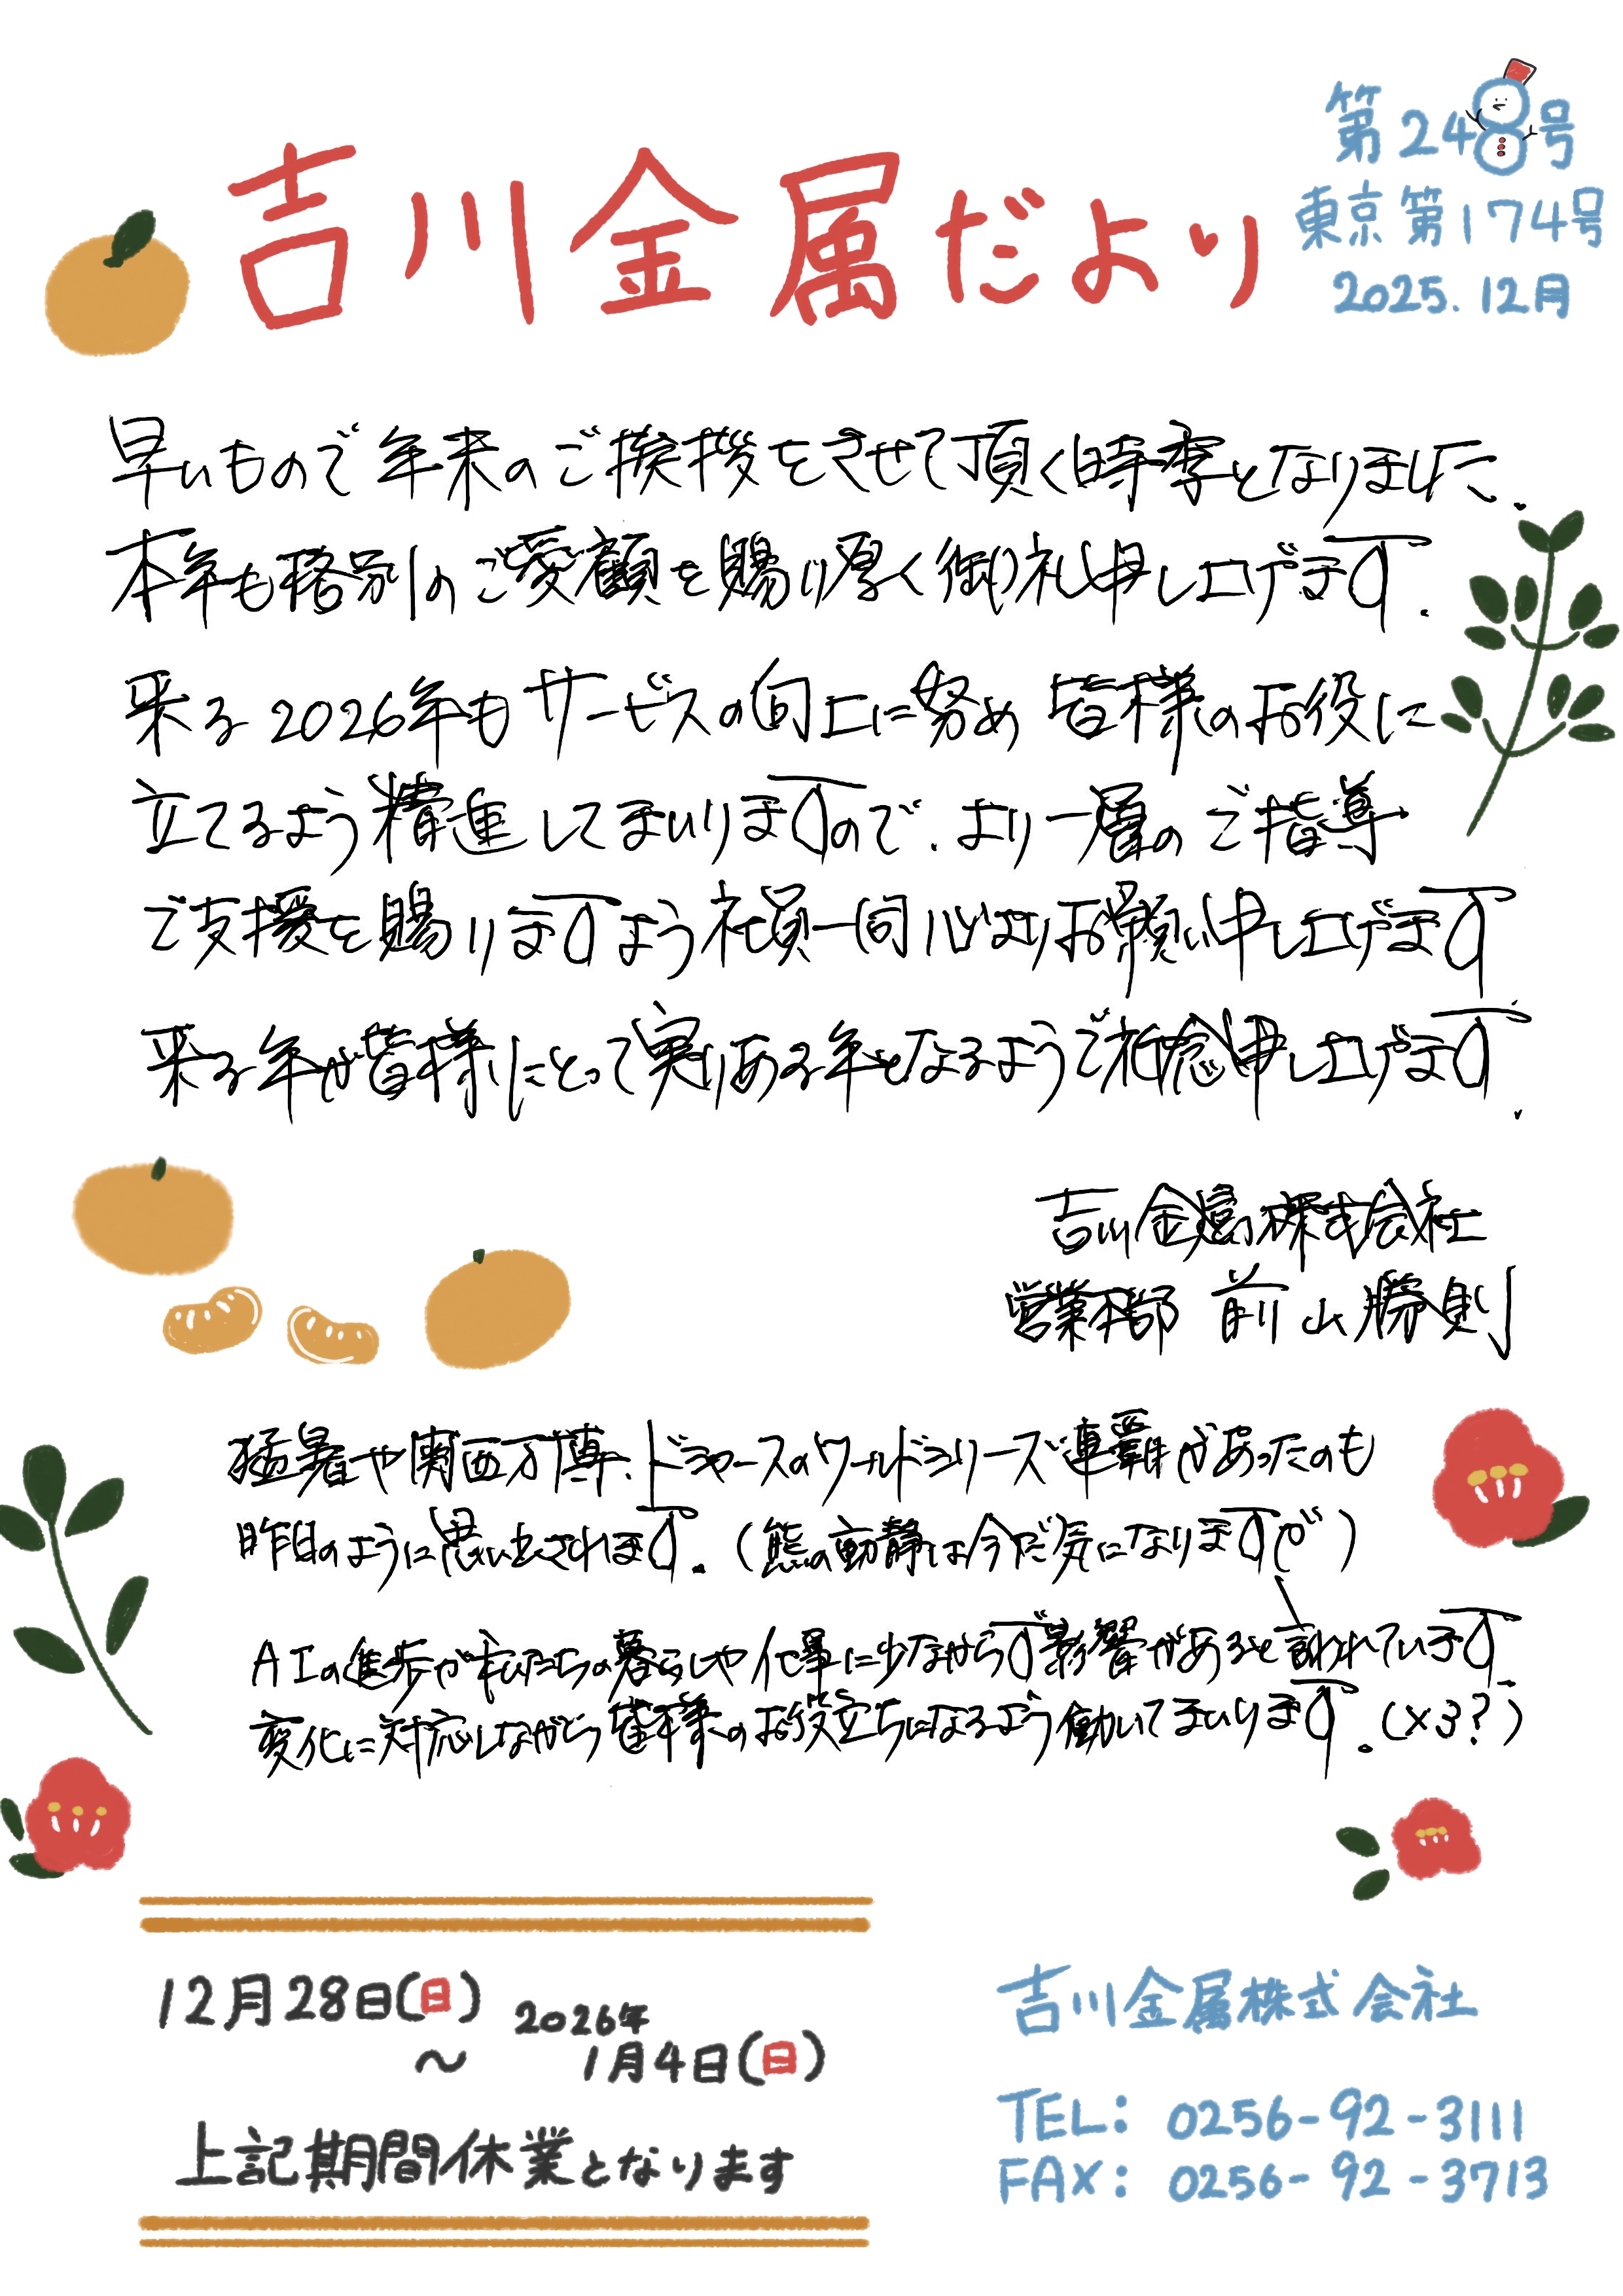 吉川金属だより
第248号
東京第174号
2025.12月
早いもので年末のご挨拶をさせて頂く時季となりました.
本年も格別のご愛顧を賜り厚く御礼申し上げます.
来る2026年もサービスの向上に努め 皆様のお役に
立てるよう精進してまいりますので、より一層のご指導
ご支援を賜りますよう社員一同心よりお願い申し上げます
来る年が皆様にとって実りある年となるようご祈念申し上げます.
吉川金属株式会社
営業本部 前山勝則
猛暑や関西万博、ドジャースのワールドシリーズ連覇があったのも
昨日のように思い出されます。(熊の動静は今だ気になりますが)
AIの進歩が私たちの暮らしや仕事に少なからず影響があると言われています
変化に対応しながら皆様のお役立ちになるよう働いてまいります。(×3?)
12月28日(日)
2026年
〜 1月4日(日)
上記期間休業となります
吉川金属株式会社
TEL: 0256-92-3111
FAX: 0256-92-3713